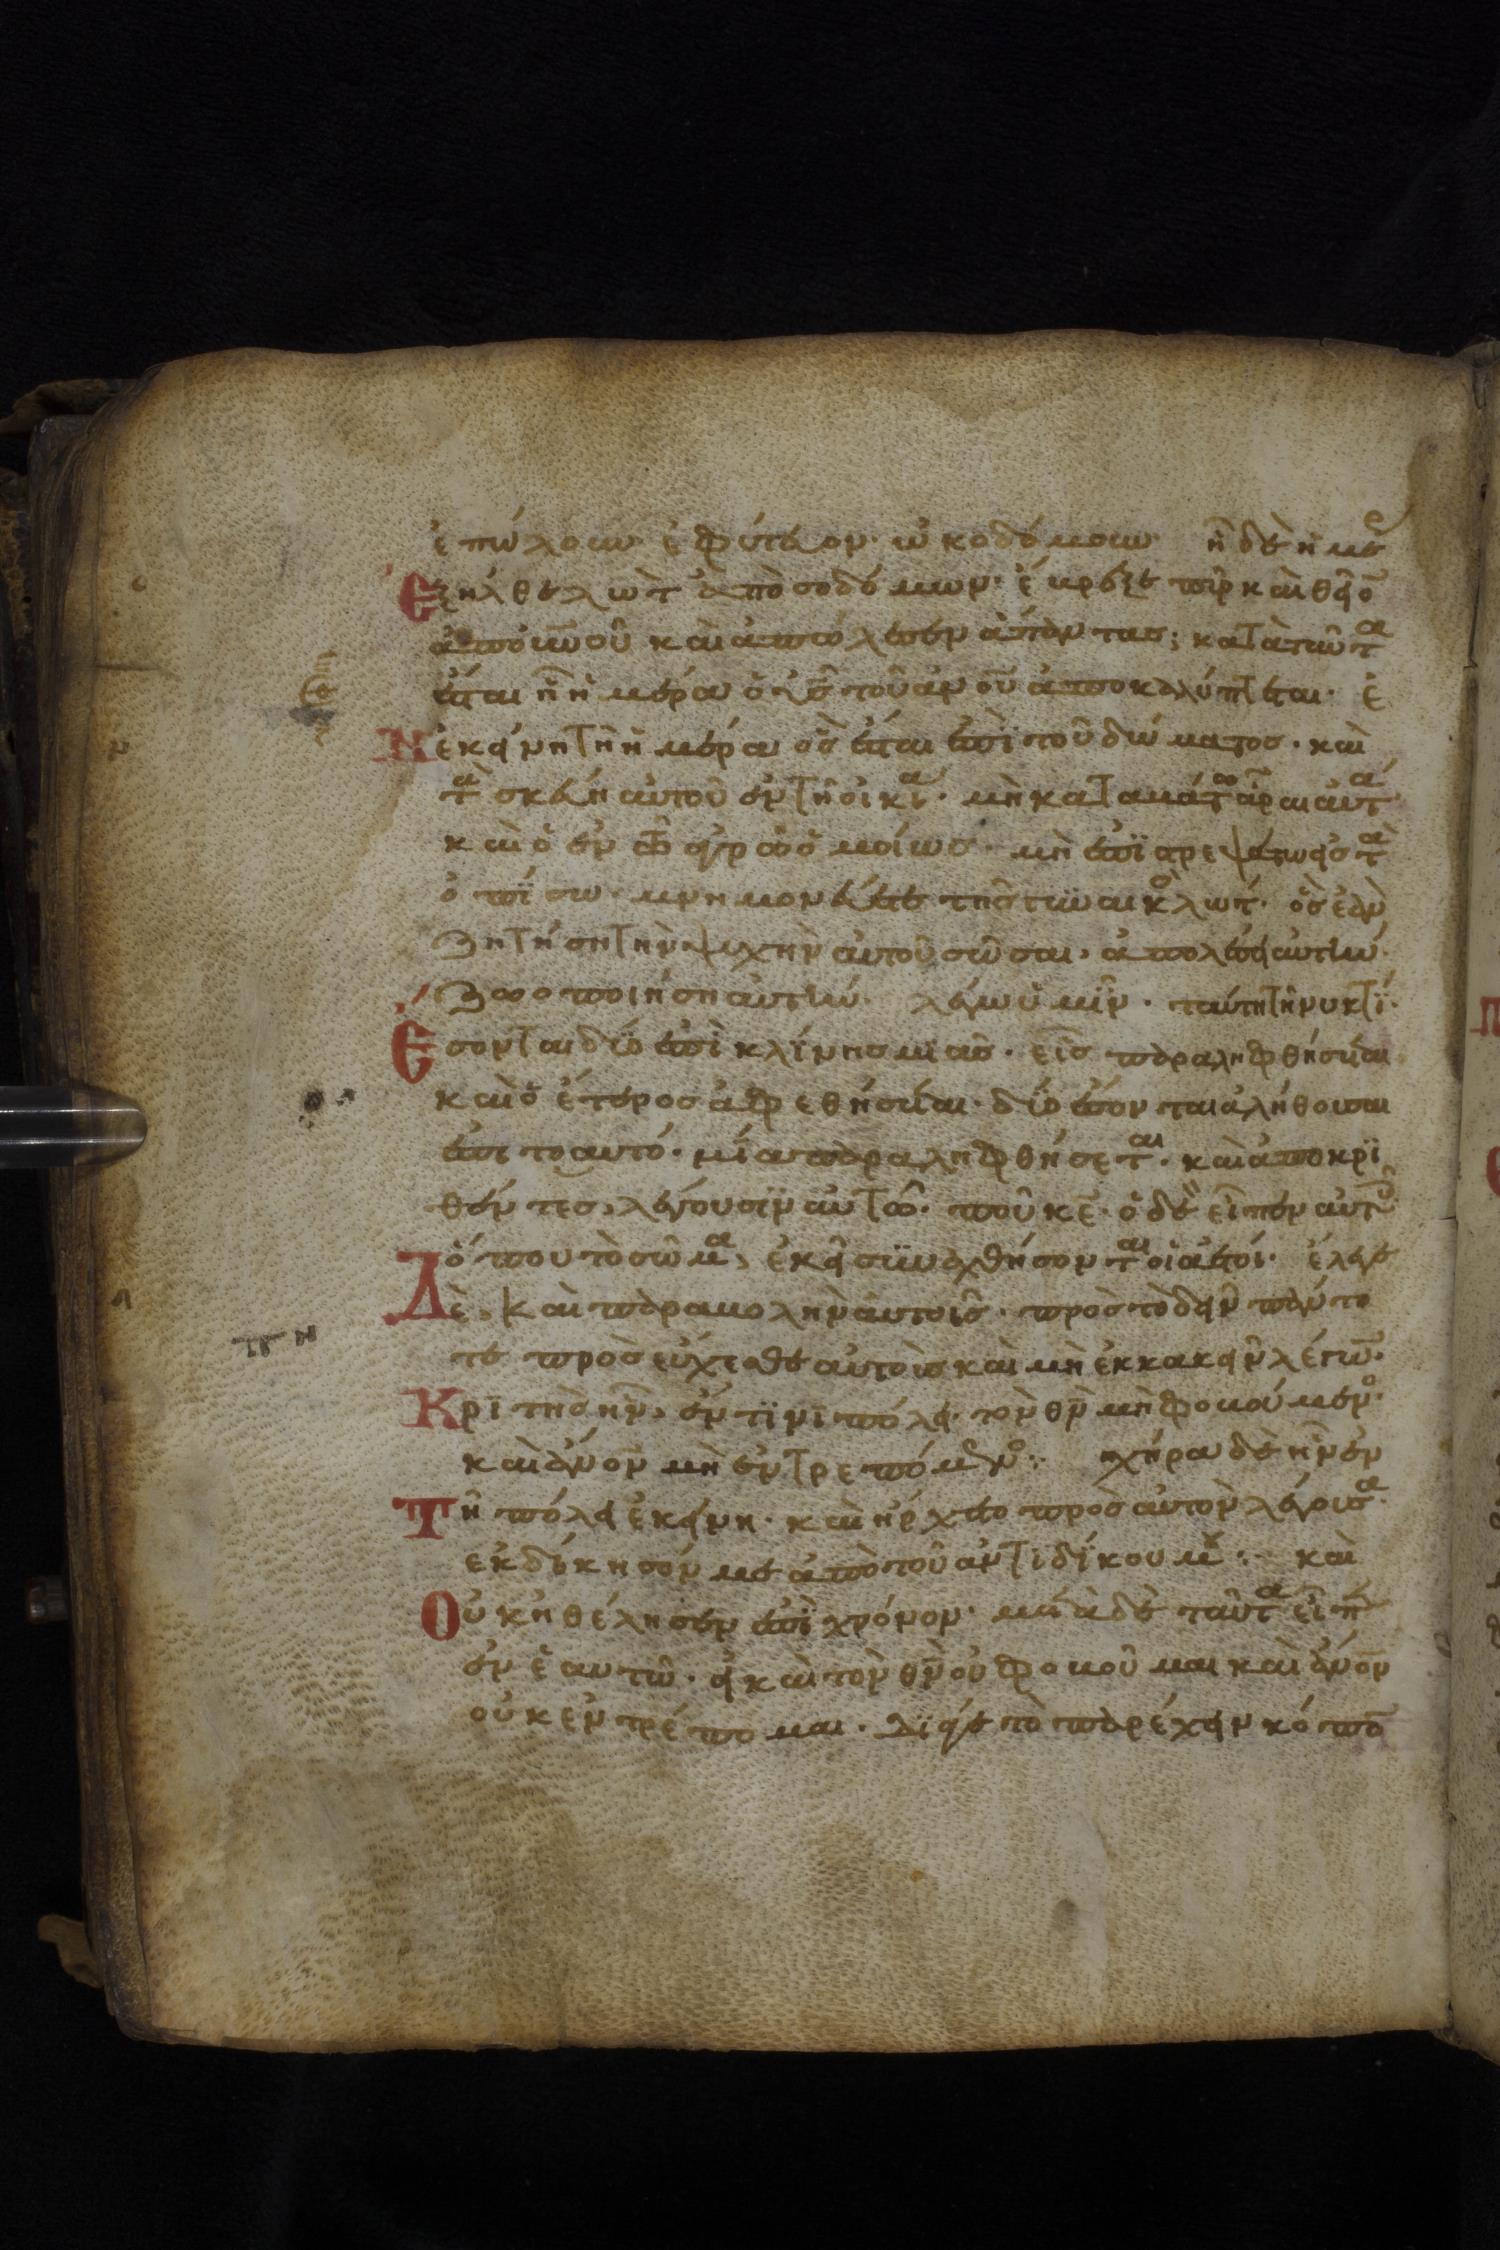 ἐπώλουν· ἐφύτευον· ὠκοδόμουν· ἧ δὲ ἡμέ
ἐξῆλθε λὼτ ἀπὸ σοδόμων· ἔβρεξε πῦρ καὶ θεῖο
ἀπ' οὐνοῦ καὶ ἀπώλεσεν ἅπαντας; κατὰ ταῦτα
ἔσται ἧ ἡμέρα ὁ υς τοῦ ανου ἀποκαλύπτεται· ἐ
Νἐκείνη τῆ ἡμέρα ὃς ἔσται ἐπὶ τοῦ δώματος· καὶ
τὰ σκεύη αὐτοῦ ἐν τῆ οἰκία· μὴ καταβάτω ἆραι αὐτά
καὶ ὁ ἐν τῶ ἀγρῶ ὁμοίως· μὴ ἐπιστρεψάτω εἰς τὰ
ὀπίσω· μνημονεύετε τῆς γυναικὸς λώτ· ὃς ἐὰν
ζητήση τὴν ψυχὴν αὐτοῦ σῶσαι, ἀπολέσει αὐτήν·
ζωοποιήση αὐτήν· λέγω ὑμῖν· ταύτη τῆ νυκτί·
Ἔσονται δύο ἐπὶ κλίνης μιᾶς· εἷς παραληφθήσεται
καὶ ὁ ἕτερος ἀφεθήσεται· δύο ἔσονται ἀλήθουσαι
ἐπι τοαυτό· μία παραληφθήσεται· καὶ ἀποκρι
θέντες, λέγουσιν αὐτῶ· ποῦ κε· ὁ δὲ εἶπεν αὐτοῖς
ὅπου τὸ σῶμα, ἐκεῖ συναχθήσονται οἱ ἀετοί· ἔλεγε
Δὲ, καὶ παραβολὴν αὐτοῖς· πρὸς τὸ δεῖν πάντο
τε προσεύχεσθε αὐτοὺς καὶ μὴ ἐκκακεῖν λέγων·
Κριτὴς ἦν, ἔν τινι πόλει· τὸν θν μὴ φοβούμενος·
καὶ ανον μὴ ἐντρεπόμενος: χήρα δὲ ἦν ἐν
Τῆ πόλει ἐκείνη· καὶ ἤρχετο πρὸς αὐτὸν λέγουσα·
ἐκδίκησόν με ἀπὸ τοῦ ἀντιδίκου μου: καὶ
Οὐκ ἠθέλησεν ἐπὶ χρόνον· μετὰ δὲ ταῦτα εἶπεν
ἐν ἑαυτῶ· εἰ καὶ τὸν θν οὐ φοβοῦμαι καὶ ανον
οὐκ ἐντρέπομαι· διάγε τὸ παρέχειν κόπον